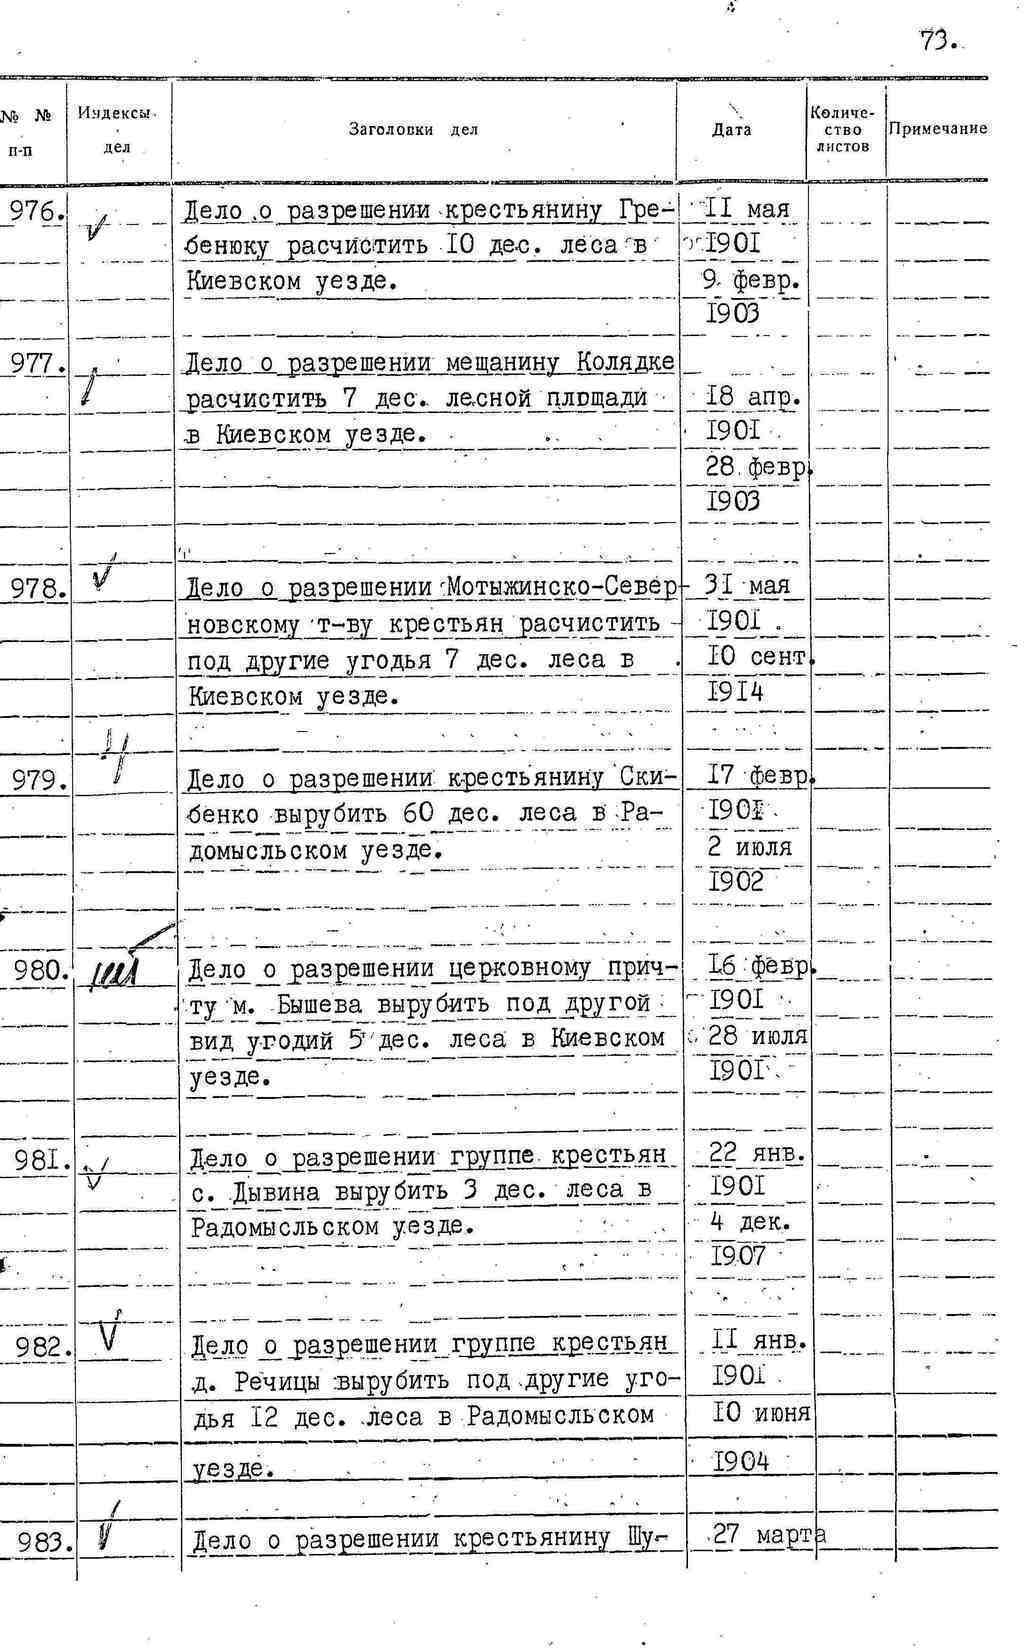 73.
№ № Индексы Заголовки дел Дата Количе- Примечание
п-п дел ство
листов
976. Дело о разрешении крестьянину Гре- II мая
бенюку расчистить IO дес. леса в I90I
Киевском уезде. 9 февр.
I903
977. Дело о разрешении мещанину Колядке
расчистить 7 дес. лесной площади I8 апр.
в Киевском уезде. I90I
28 февр.
I903
978. Дело о разрешении Мотыжинско-Север- 3I мая
новскому т-ву крестьян расчистить I90I
под другие угодья 7 дес. леса в IO сент.
Киевском уезде. I9I4
979. Дело о разрешении крестьянину Ски- I7 февр.
бенко вырубить 60 дес. леса в Ра- I90I
домысльском уезде. 2 июля
I902
980. Дело о разрешении церковному прич- I6 февр.
ту м. Бышева вырубить под другой I90I
вид угодий 5 дес. леса в Киевском 28 июля
уезде. I90I
98I. Дело о разрешении группе крестьян 22 янв.
с. Дывина вырубить 3 дес. леса в I90I
Радомысльском уезде. 4 дек.
I907
982. Дело о разрешении группе крестьян II янв.
д. Речицы вырубить под другие уго- I90I
дья I2 дес. леса в Радомысльском IO июня
уезде. I904
983. Дело о разрешении крестьянину Шу- 27 марта